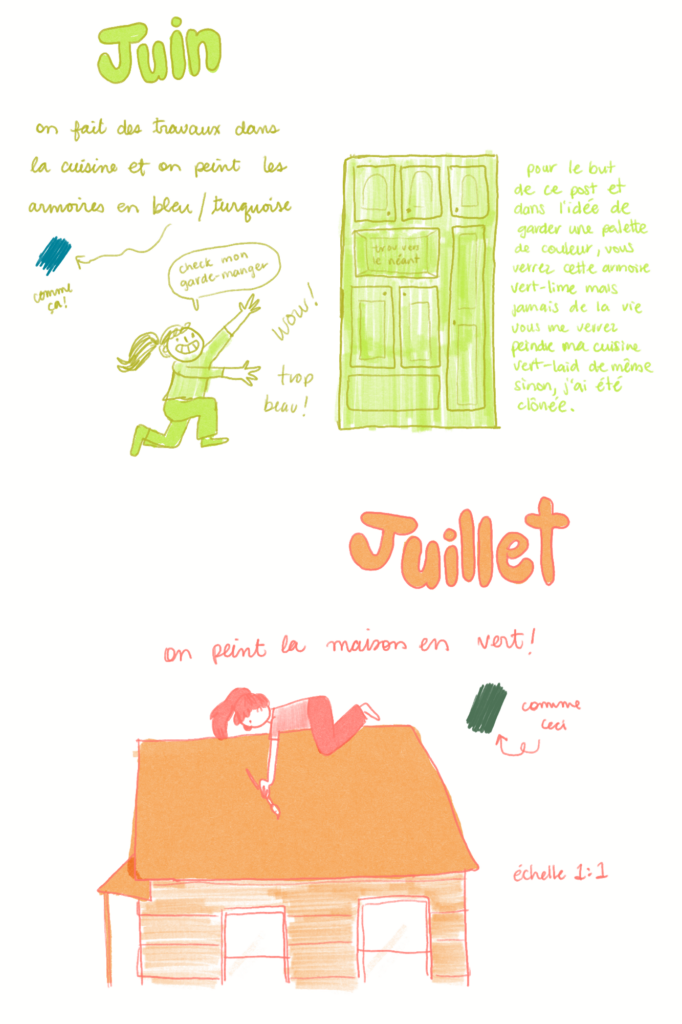 Juin
on fait des travaux dans
la cuisine et on peint les
armoires en bleu/turquoise
comme
ça!
check mon
garde-manger
wow!
trop
beau!
trou vers
le néant
pour le but
de ce post et
dans l'idée de
garder une palette
de couleur, vous
verrez cette armoire
vert-lime mais
jamais de la vie
vous me verrez
peindre ma cuisine
vert-laid de même
sinon, j'ai été
clônée.
Juillet
on peint la maison en vert!
comme
ceci
échelle 1:1